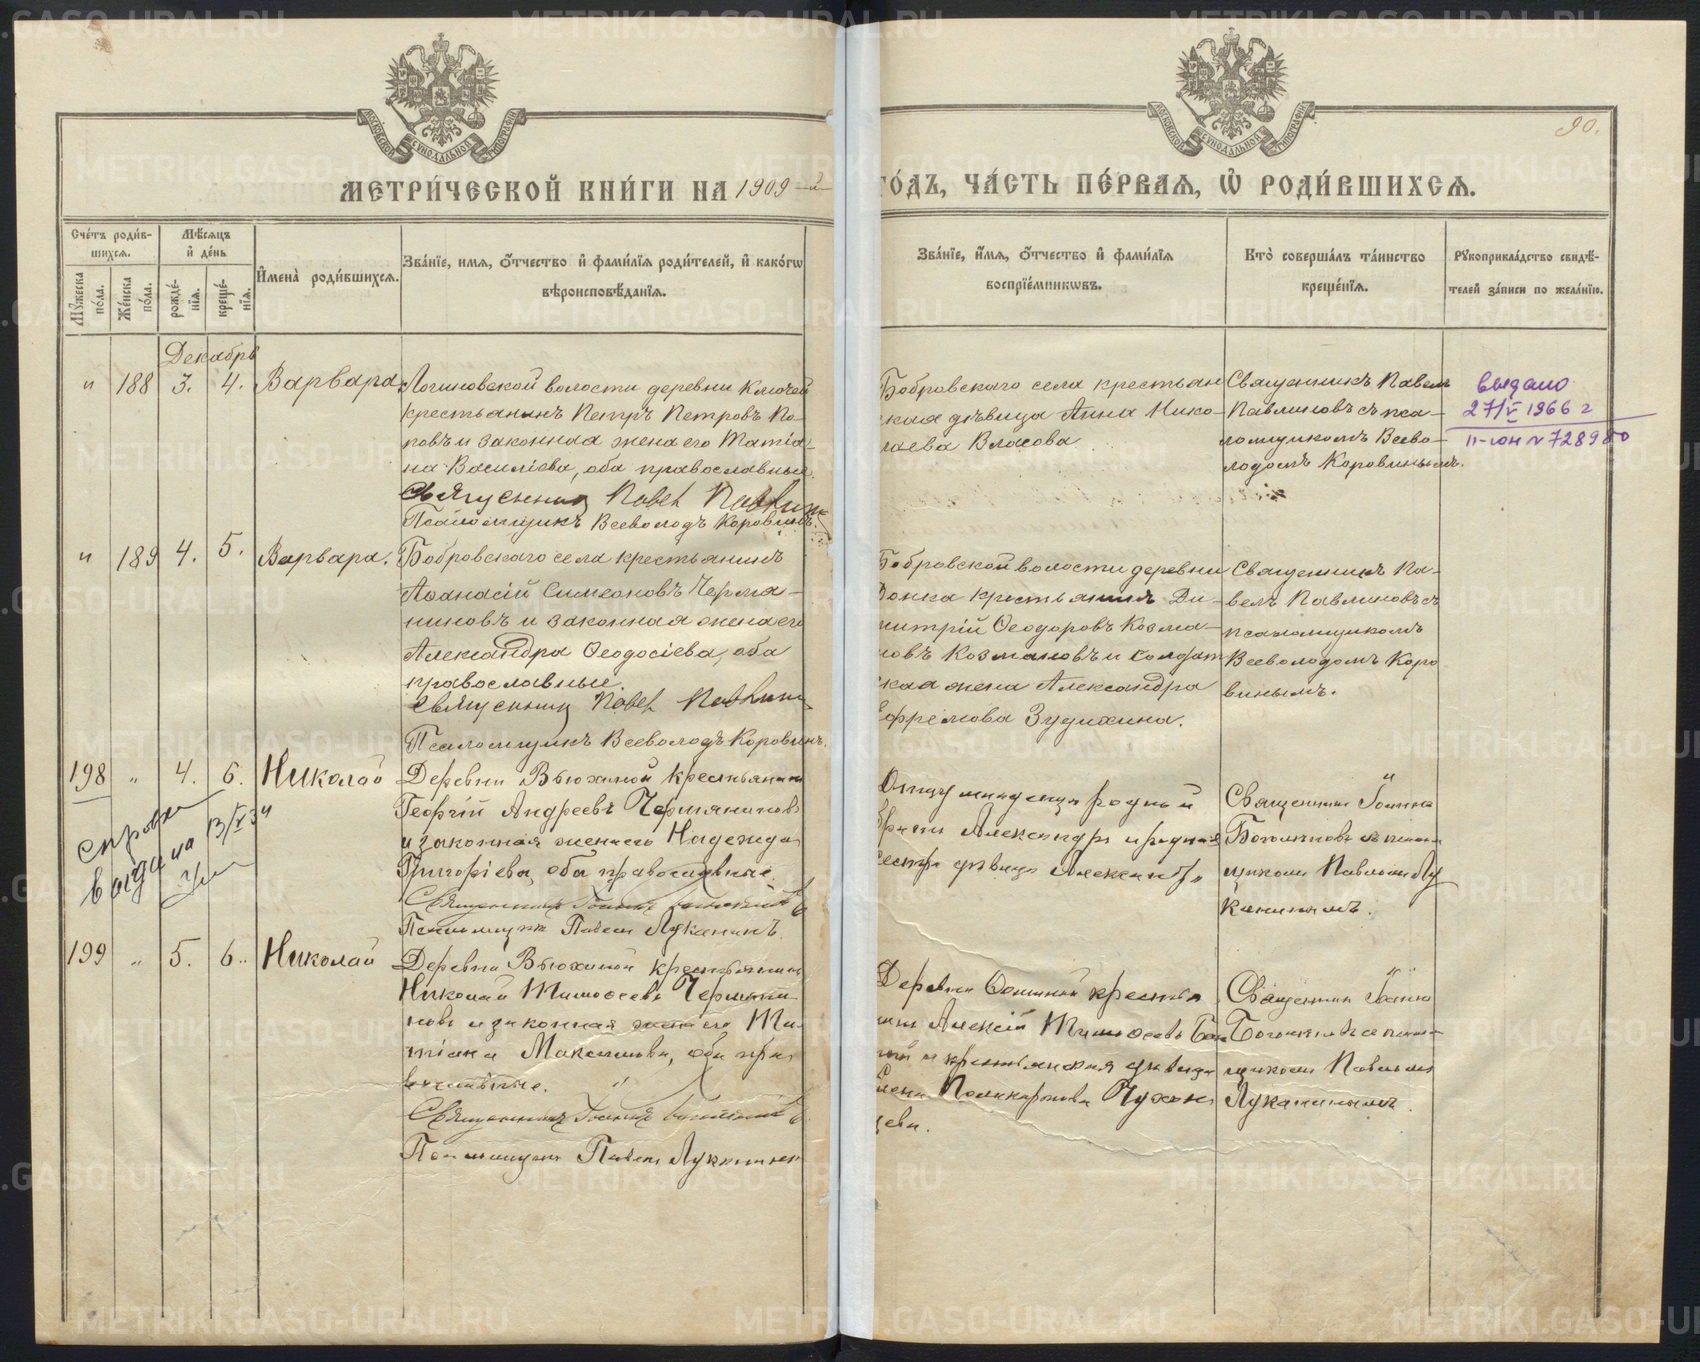 90.
МЕТРИ́ЧЕСКОЙ КНИ́ГИ НА 1909-й
ГО́ДЪ, ЧА́СТЬ ПЕ́РВАЯ, Ѽ РОДИ́ВШИХСЯ.
Сче́тъ роди́в-
шихся.
Мѣ́сяцъ
и҆ де́нь
Му́жеска
по́ла.
Же́нска
по́ла.
рожде́-
нїя.
креще́-
нїя.
И҆мена̀ роди́вшихся.
Зва́нїе, имя, ѻ҆́тчество и҆ фами́лїя роди́телей, и҆ како́гѡ
вѣроисповѣ́данїя.
Зва́нїе, и҆́мя, ѻ҆́тчество и҆ фами́лїя
воспрїе́мникѡвъ.
Кто̀ соверша́лъ та́инство
креще́нїя.
Рꙋкоприкла́дство свидѣ́-
телей за́писи по жела́нїю.
Декабрь
" 188 3. 4. Варвара
Логиновской волости деревни Ключей
крестьянинъ Петръ Петровъ По-
повъ и законная жена его Татiа-
на Василiева, оба православные
Священник Павел
Псаломщикъ Всеволодъ Коровинъ.
Бобровскаго села крестьян
ская дѣвица Анна Нико-
лаева Власова
Священникъ Павелъ
Павлиновъ съ пса-
ломщикомъ Всево-
лодомъ Коровинымъ.
выдано
27/V 1966 г
II-ЮН № 728980
" 189 4. 5. Варвара.
Бобровскаго села крестьянинъ
Аѳанасiй Симеоновъ Черма-
ниновъ и законная жена его
Александра Ѳеодосiева, оба
православные.
Священник Павел
Псаломщикъ Всеволодъ Коровинъ.
Бобровской волости деревни
крестьянинъ Ди-
митрiй Ѳеодоровъ Козма-
новъ Козмановъ и солдат
ская жена Александра
Ефремова Зудихина.
Священникъ Па-
велъ Павлиновъ съ
псаломщикомъ
Всеволодомъ Коро
винымъ.
198 " 4. 6. Николай
Деревни Вьюхиной крестьянин
Георгiй Андреевъ Чермяниновъ
и законная жена его Надежда
Григорiева, оба православные.
Псаломщик Павел Луканинъ.
справка
выдана 13/V 34
родной
братъ Александръ и родная
сестра дѣвица Александра
Священник Iоанна
псалом-
щиком Павломъ Лу
канинымъ.
199 " 5. 6. Николай
Деревни Вьюхиной крестьянин
Николай Тимоѳеевъ Чермяни-
новъ и законная жена его Та-
тiана Максимова, оба пра-
вославные.
Псаломщик Павел Луканин
Деревни крестья
нин Алексiй Тимоѳеевъ
и крестьянская дѣвица
Елена Поликарпова
Священник Iоанн
псалом-
щиком Павломъ
Луканинымъ.